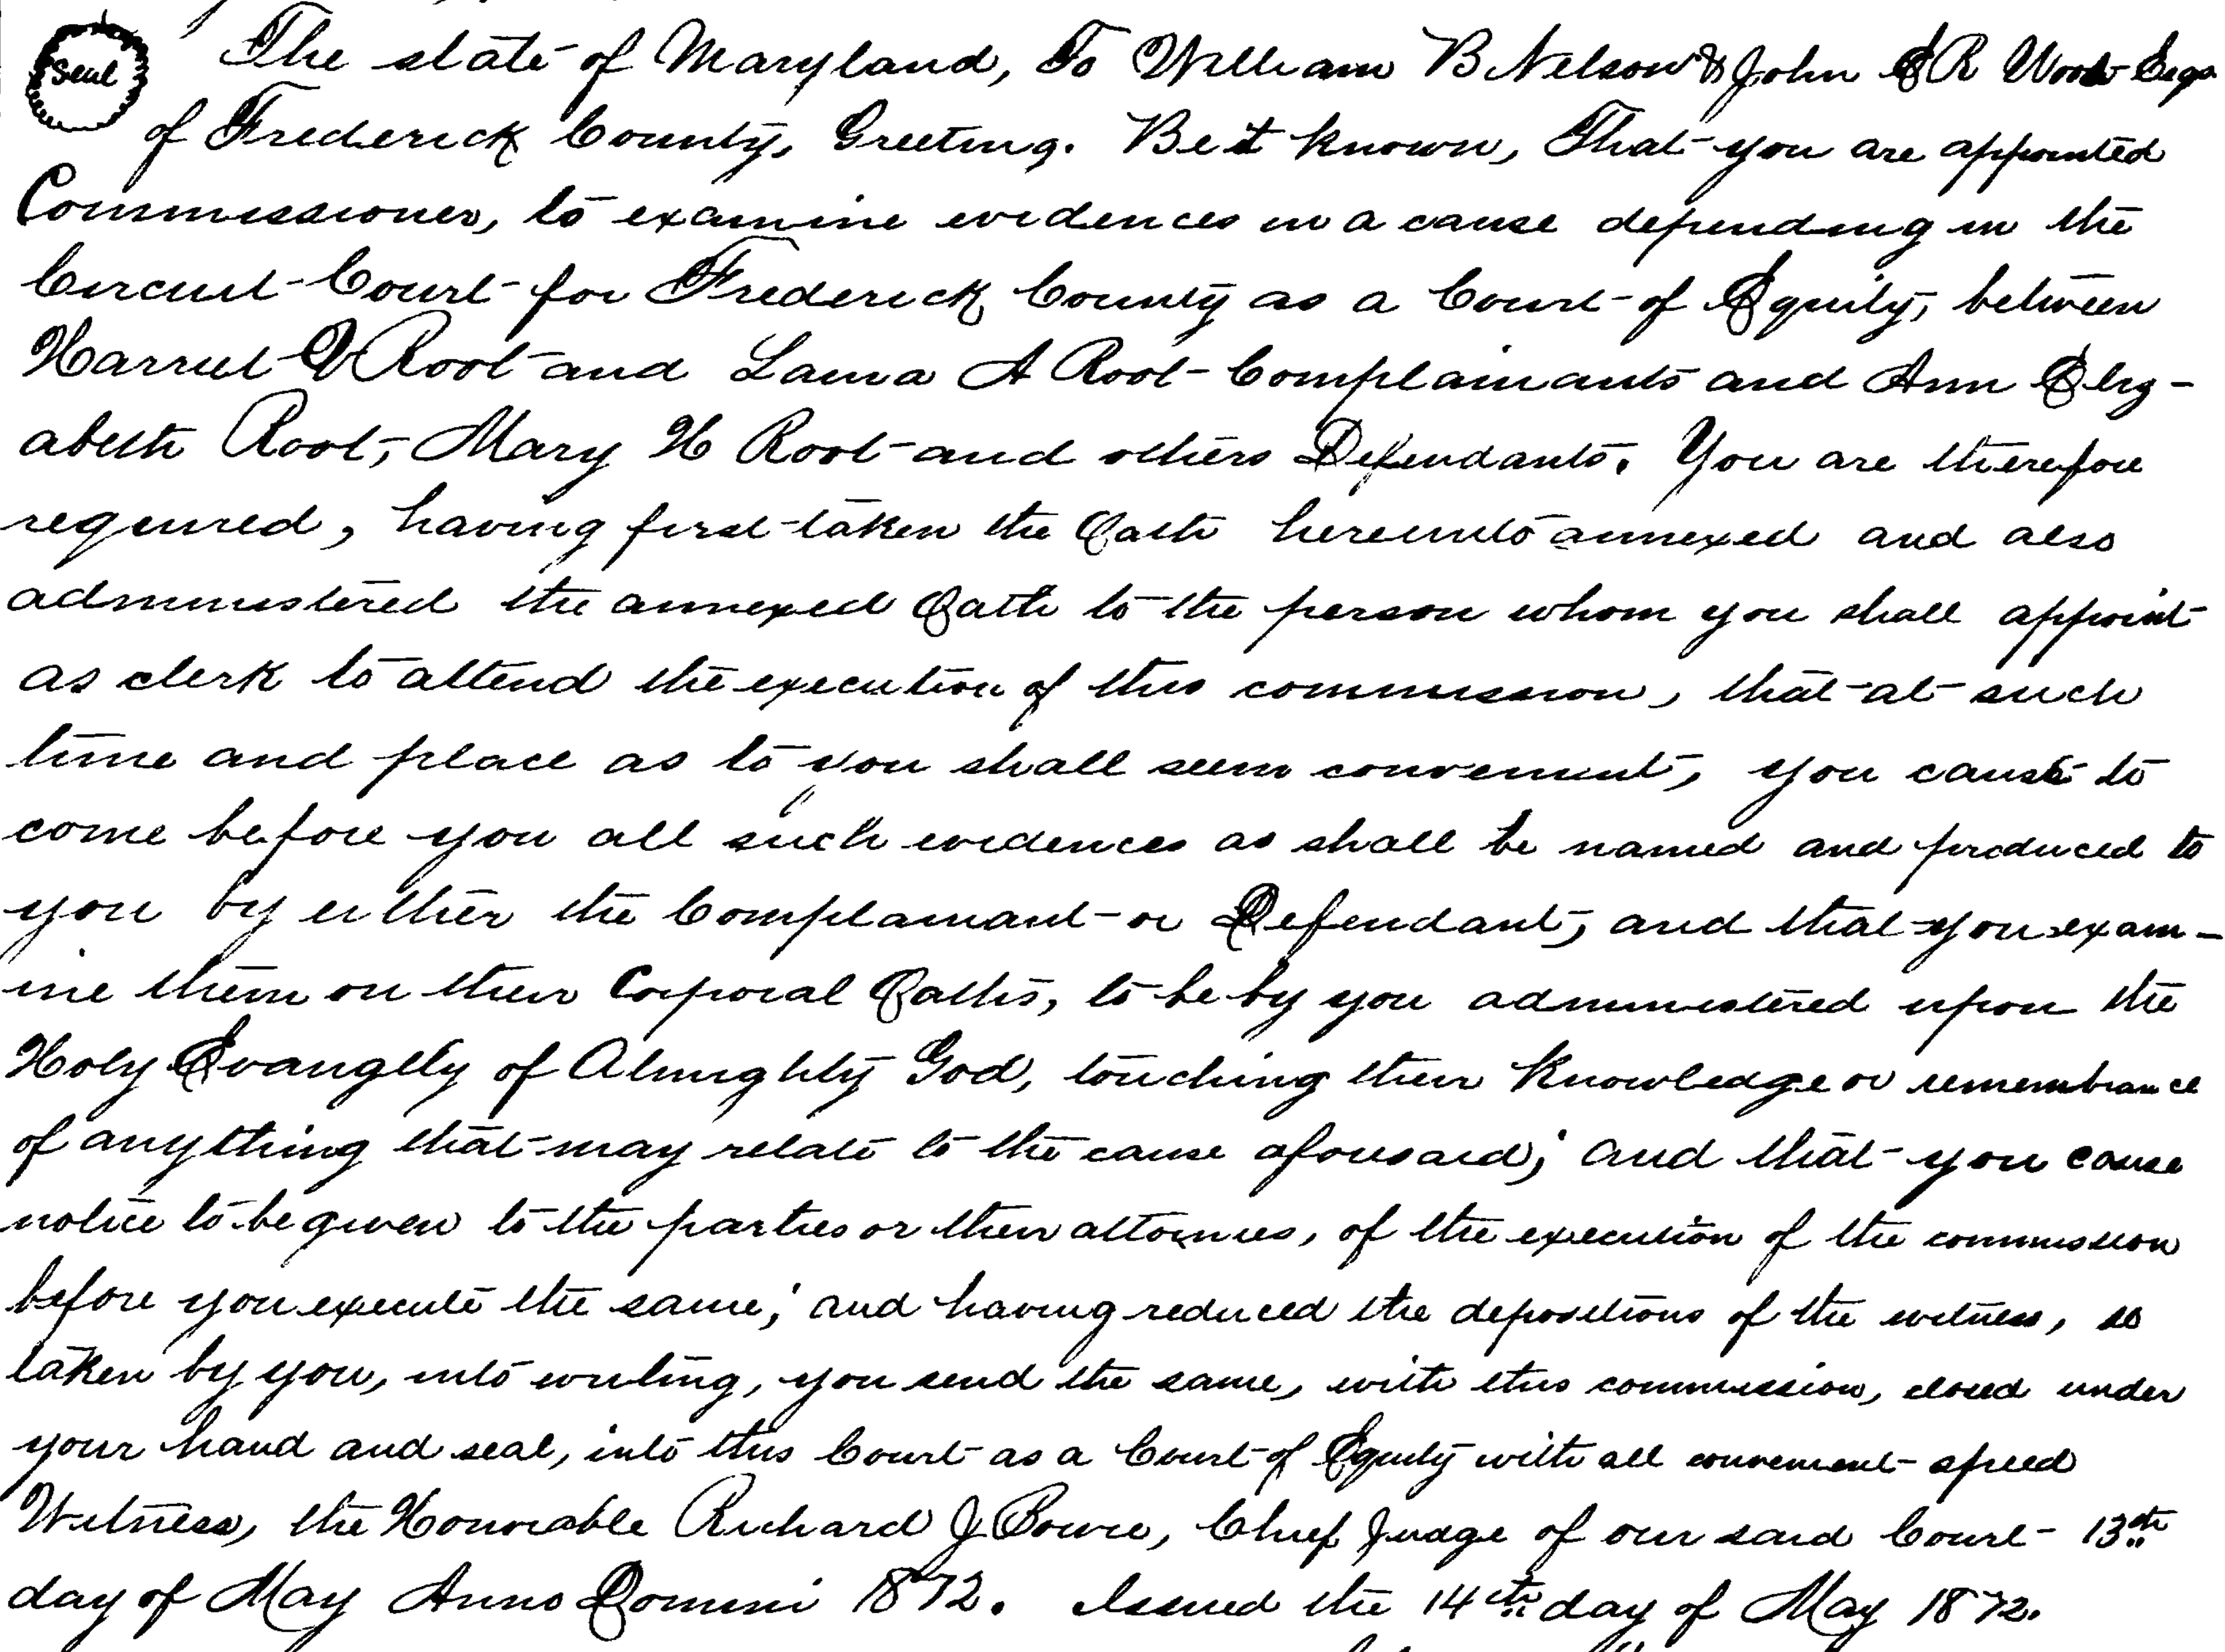 Seal The state of Maryland, To William B Nelson & John R Wood Esqs
of Frederick County, Greeting. Be it known, That you are appointed
Commissioner, to examine evidences in a cause depending in the
Circuit Court for Frederick County as a Court of Equity, between
Harriet V Root and Laura A Root Complainants and Ann Eliz-
abeth Root, Mary H Root and others Defendants. You are therefore
required, having first taken the Oath hereunto annexed and also
administered the annexed Oath to the person whom you shall appoint
as clerk to attend the execution of this commission, that at such
time and place as to you shall seem convenient, you cause to
come before you all such evidences as shall be named and produced to
you by either the Complainant or Defendant, and that you exam-
ine them on their Corporal Oaths, to be by you administered upon the
Holy Evangely of Almighty God, touching their knowledge or remembrance
of anything that may relate to the cause aforesaid; and that you cause
notice to be given to the parties or their attornies, of the execution of the commission
before you execute the same; and having reduced the depositions of the witness, so
taken by you, into writing, you send the same, with this commission, closed under
your hand and seal, into this Court as a Court of Equity with all convenient speed
Witness, the Honorable Richard J Bowie, Chief Judge of our said Court 13th
day of May Anno Domini 1872. Issued the 14th day of May 1872.